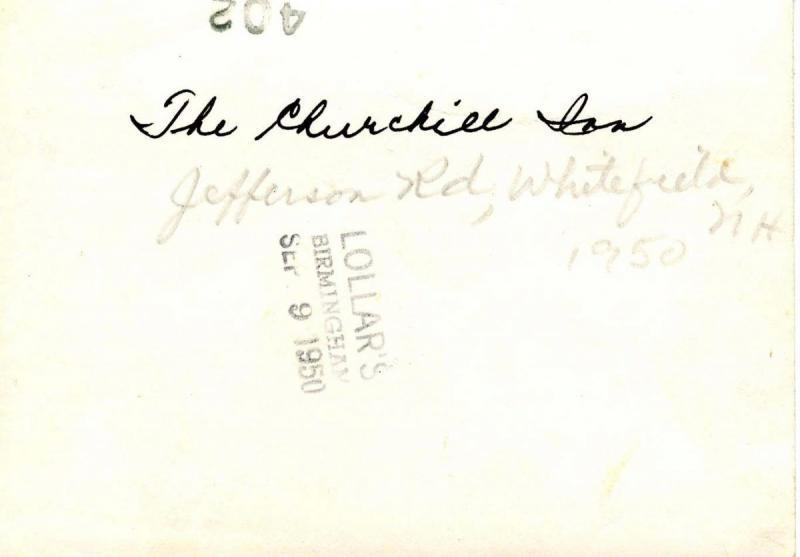 402
The Churchill Inn
Jefferson Rd, Whitefield,
NH
1950
LOLLAR'S
BIRMINGHAM
SEP 9 1950